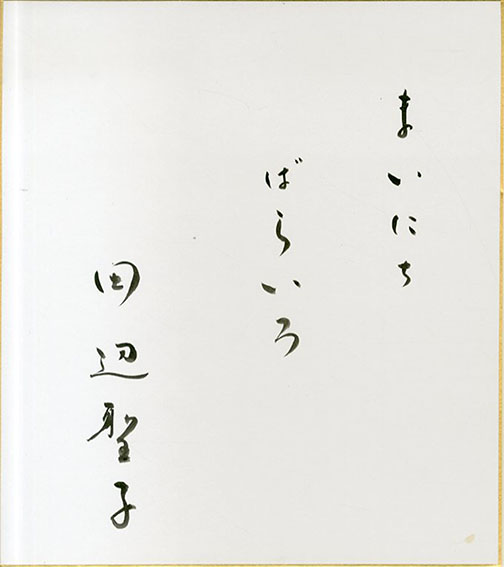 まいにち
ばらいろ
田辺聖子